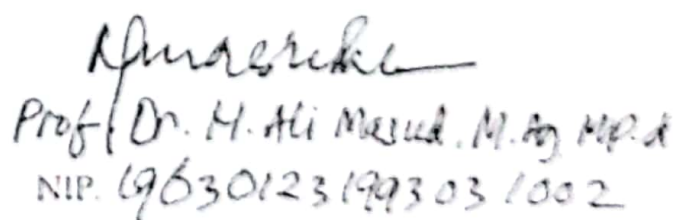 Prof. Dr. H. Ali Masud. M.Ag M.Pd
NIP. 196301231993031002